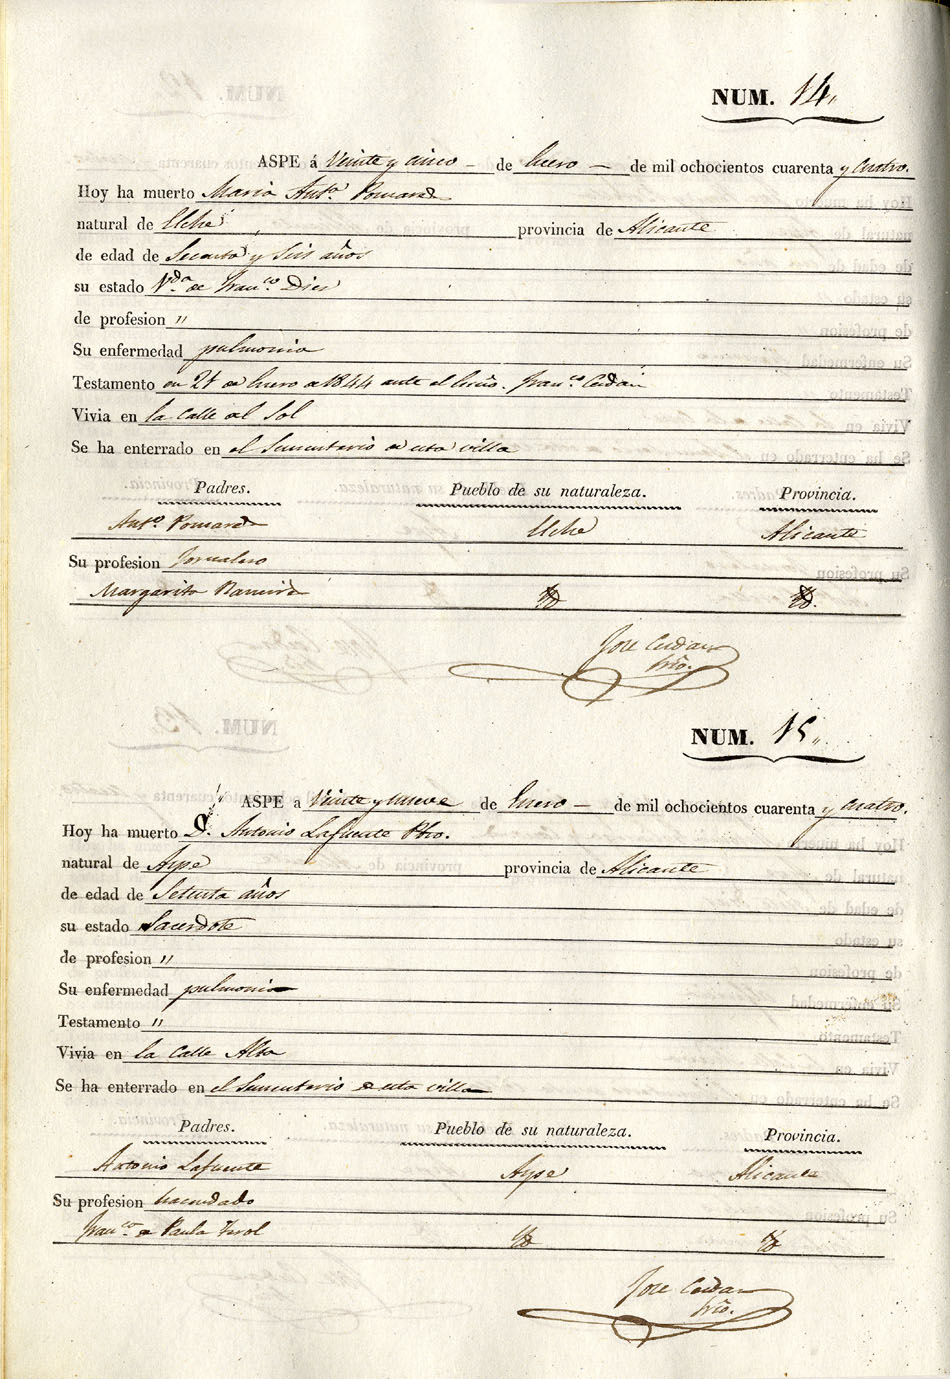 NUM. 14.
ASPE á Veinte y cinco - de Enero - de mil ochocientos cuarenta y cuatro.
Hoy ha muerto Maria Antª. Pomares
natural de Elche provincia de Alicante
de edad de Secenta y Seis años
su estado Vda. de Franco. Dies
de profesion "
Su enfermedad pulmonia
Testamento en 21 de Enero de 1844 ante el Esño. Franco.
Vivia en la Calle del Sol
Se ha enterrado en el Sementerio de esta villa
Padres. Pueblo de su naturaleza. Provincia.
Anto. Pomares Elche Alicante
Su profesion Jornalero
Margarita Ramires Yd Yd.
Jose
Srio.
NUM. 15.
ASPE a Veinte y nueve de Enero - de mil ochocientos cuarenta y cuatro.
Hoy ha muerto D. Antonio Lafuente Pbro.
natural de Aspe provincia de Alicante
de edad de Setenta años
su estado Sacerdote
de profesion "
Su enfermedad pulmonia
Testamento "
Vivia en la Calle Alta
Se ha enterrado en el Sementerio de esta villa
Padres. Pueblo de su naturaleza. Provincia.
Antonio Lafuente Aspe Alicante
Su profesion hacendado
Franca. de Paula Terol Yd Yd
Jose
Srio.